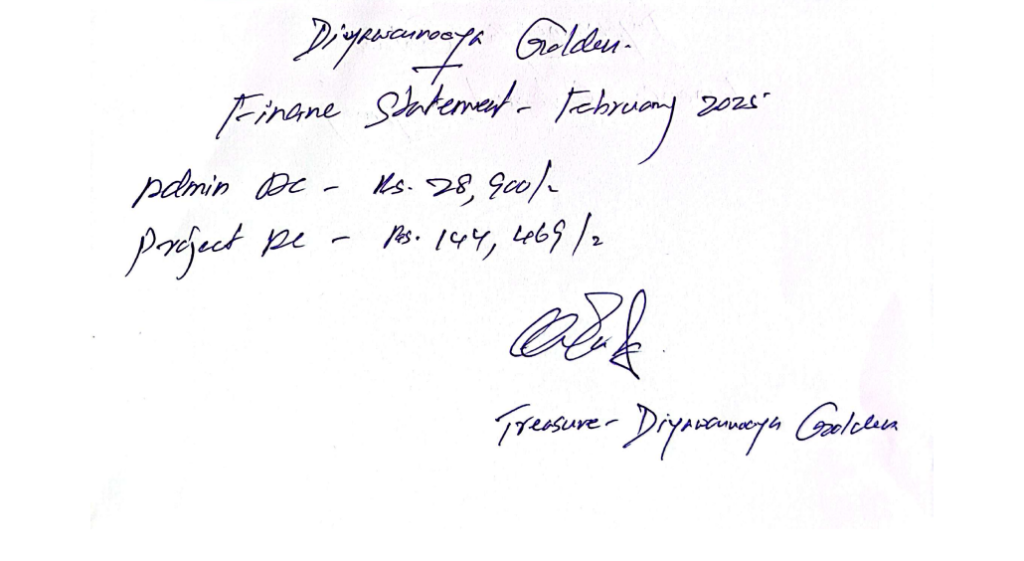 Diyawannaoya Golden.
Finance Statement - February 2025
Admin AC - Rs. 28,900/-
Project AC - Rs. 144,469/-
Treasure - Diyawannaoya Golden